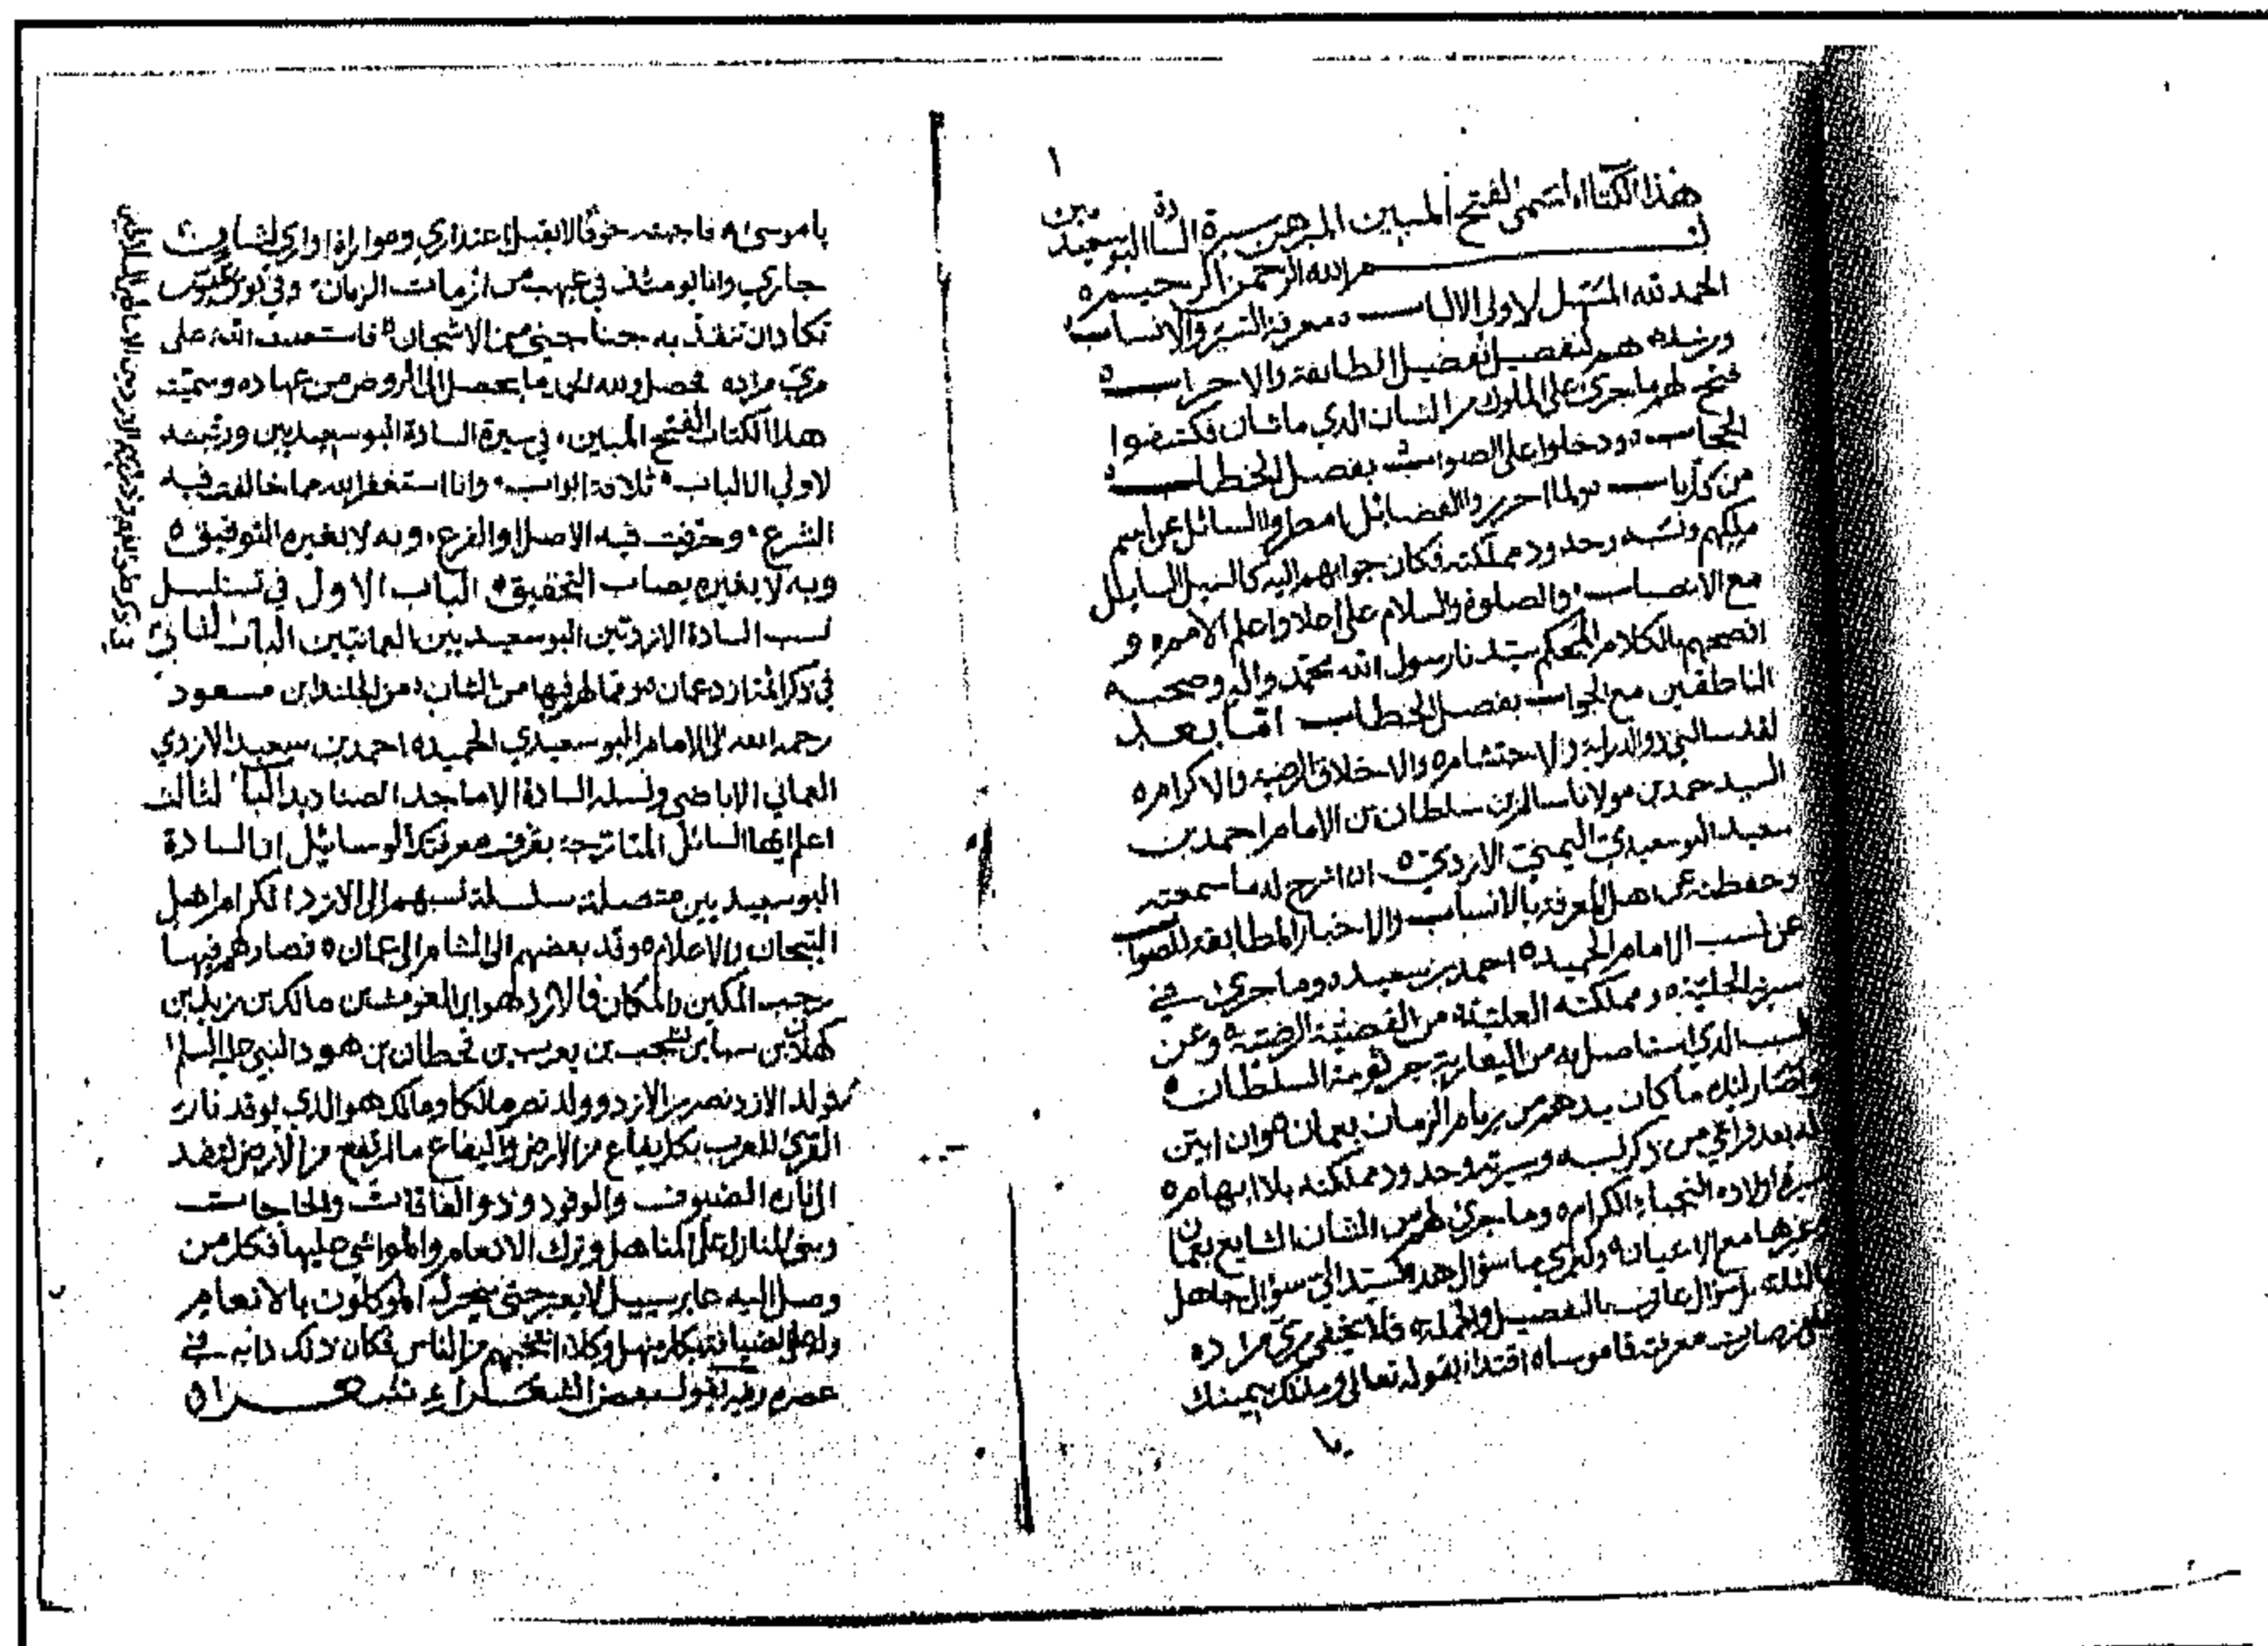 ١
هذا الكتاب المسمى الفتح المبين المبرهن سيرة السادة البوسعيديين
بسم الله الرحمن الرحيم ه
الحمد لله المسهل لاولي الالباب ه معرفة السير والانساب
ومرشدهم لتفصيل تفضيل الطايفة والاحزاب ه
فتح لهم ما جرى على الملوك من الشان الذي ما شان فكشفوا
الحجاب ه ودخلوا على الصواب بفصل الخطاب ه
من كل باب ولما احرزوا الفضائل امطروا السائل عن اسم
ملكهم ونسبه وحدود مملكته فكان جوابهم اليه كالسيل السايل
مع الانصباب والصلوة والسلام على اجلا واعلم الامم ه و
افصحهم بالكلام المحكم سيدنا رسول الله محمد واله وصحبه
الناطقين مع الجواب بفصل الخطاب اما بعد
لقد سالني ذو الدراية والاحتشام ه والاخلاق الرضية والاكرام ه
السيد حمد بن مولانا سالم بن سلطان بن الامام احمد بن
سعيد البوسعيدي اليمني الازدي ه ان اشرح له ما سمعته
وحفظته عن اهل المعرفة بالانساب والاخبار المطابقة للصواب
عن نسب الامام الحميد ه احمد بن سعيد ه وما جرى في
سيرته الجلية ه ومملكته العلية ه من القضية الرضية ه وعن
السبب الذي استاصل به من اليعاربة جرثومة السلطان ه
واصار اليه ما كان بيدهم من زمام الزمان بعمان ه وان ابين
له بعد فراغي من ذكر نسبه وسيرته وحدود مملكته بلا ابهام ه
سيرة اولاده النجباء الكرام ه وما جرى لهم من الشان الشايع بعمان
وغيرها مع الاعيان ه ولعمري ما سؤال هذا السيد الي سؤال جاهل
بالمسئلة بل سؤال عارف بالتفصيل والجملة ه فلا يخفى مرى مراده
على من صارت معرفته قاموساه اقتداء بقوله تعالى وما تلك بيمينك
يا موسى ه فاجبته خوفا لا يقبل اعتذاري ومواراة اواري لشارف
جاري وانا يومئذ في غيهب من ازمات الزمان ه وفي
تكاد ان تنفذ به جناجني من الاشجان ه فاستعنت الله على
مرى مراده فحصل ولله الحمد ما يحصل الى الروض من عهاده وسميته
هذا الكتاب الفتح المبين ه في سيرة السادة البوسعيديين ورتبته
لاولي الالباب ه ثلاثة ابواب ه وانا استغفر الله مما خالفت فيه
الشرع ه وحرفت فيه الاصل والفرع ه وبه لا بغيره التوفيق ه
وبه لا بغيره يصاب التحقيق ه الباب الاول في تسلسل
نسب السادة الازديين البوسعيديين العمانيين الباب الثاني
في ذكر ائمة ازد عمان وما لهم فيها من الشان ه من الجلندا بن مسعود
رحمه الله الى الامام البوسعيدي الحميد ه احمد بن سعيد الازدي
العماني الاباضي ونسله السادة الاماجد الصناديد الباب الثالث
اعلم ايها السائل المتأرجة بعرف معرفتك الوسائل ان السادة
البوسعيديين متصلة سلسلة نسبهم الى الازد الكرام اهل
التيجان والاعلام ه وقد بعضهم الى الشام الى عمان ه فصار لهم فيها
رحب المكين والمكان فالازد هو ابن الغوث بن مالك بن زيد بن
كهلان بن سبا بن يشجب بن يعرب بن قحطان بن هود النبي عليه السلم
فولد الازد نصر بن الازد وولد نصر مالكا ومالك هو الذي يوقد نار
القرى للعرب بكل يفاع من الارض واليفاع ما ارتفع من الارض لتقصد
الى ناره الضيوف والوفود وذو الفاقات والحاجات
وبنى المنازل على المناهل وترك الانعام والمواشي عليها فكل من
وصل اليه عابر سبيل لا يعبر حتى ينحر له الموكلون بالانعام
واهل الضيافة بكل منهل وكل انتخبهم من الناس فكان ذلك دابه في
عصره وفيه يقول بعض الشعراء شعراه